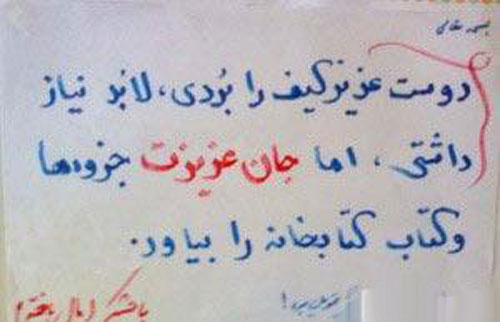 بسمه تعالی
دوست عزیز کیف را بُردی، لابُد نیاز
داشتی، اما جان عزیزت جزوه‌ها
و کتاب کتابخانه را بیاور.
باتشکر (مال باخته)